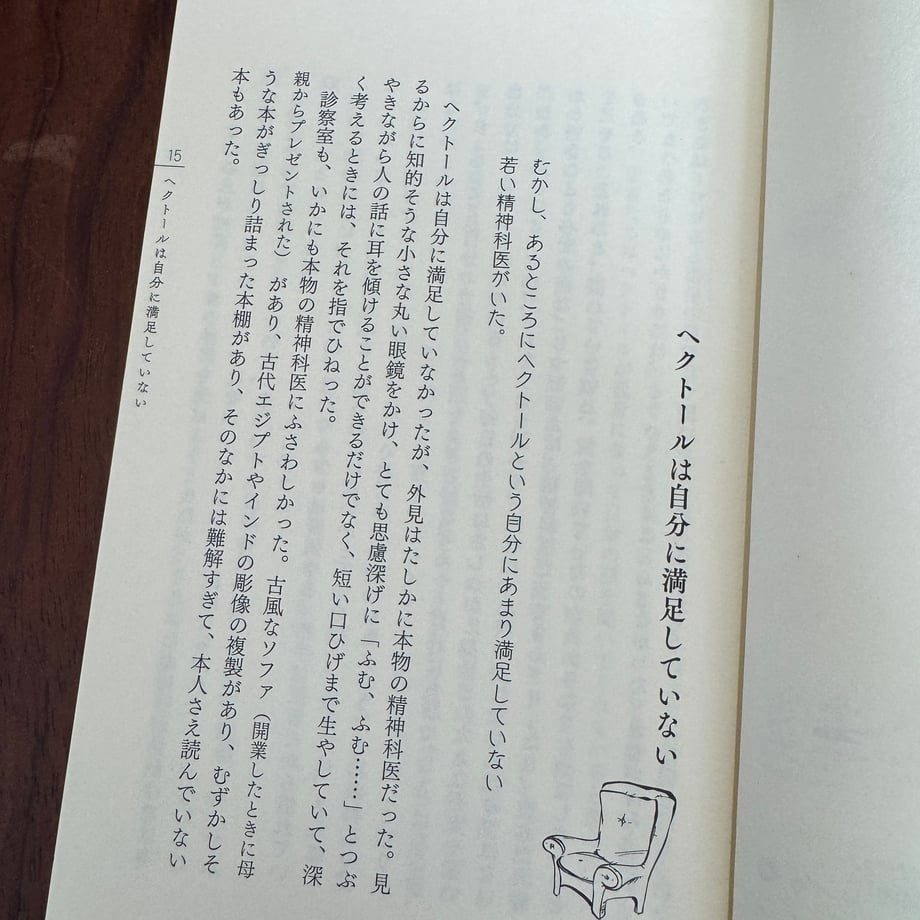 ヘクトールは自分に満足していない
むかし、あるところにヘクトールという自分にあまり満足していない
若い精神科医がいた。
ヘクトールは自分に満足していなかったが、外見はたしかに本物の精神科医だった。見
るからに知的そうな小さな丸い眼鏡をかけ、とても思慮深げに「ふむ、ふむ……」とつぶ
やきながら人の話に耳を傾けることができるだけでなく、短い口ひげまで生やしていて、深
く考えるときには、それを指でひねった。
診察室も、いかにも本物の精神科医にふさわしかった。古風なソファ（開業したときに母
親からプレゼントされた）があり、古代エジプトやインドの彫像の複製があり、むずかしそ
うな本がぎっしり詰まった本棚があり、そのなかには難解すぎて、本人さえ読んでいない
本もあった。
15
ヘクトールは自分に満足していない